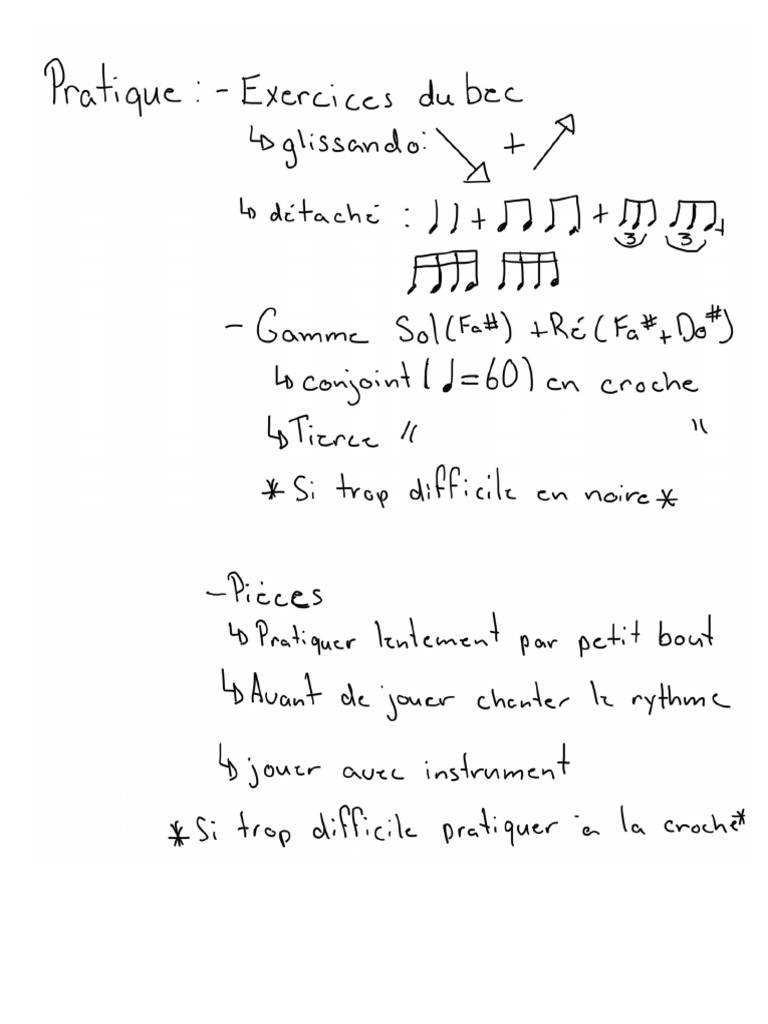 Pratique : - Exercices du bec
↳ glissando: ↘ + ↗
↳ détaché : ♩♩ + ♫ ♫ + 3 3 +
- Gamme Sol (Fa#) + Ré (Fa# + Do#)
↳ conjoint (♩=60) en croche
↳ Tierce " "
* Si trop difficile en noire *
- Pièces
↳ Pratiquer lentement par petit bout
↳ Avant de jouer chanter le rythme
↳ jouer avec instrument
* Si trop difficile pratiquer à la croche *